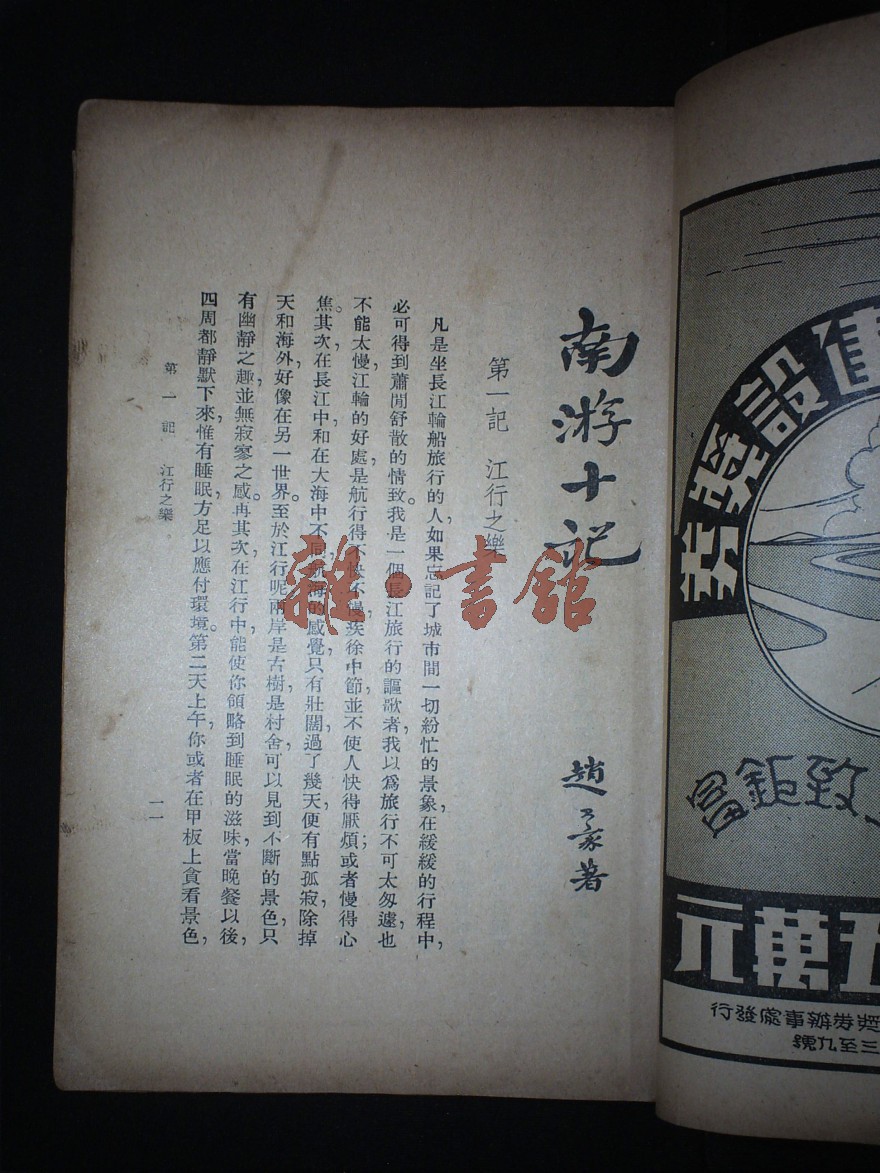 南游十記
趙君豪著
第一記 江行之樂
凡是坐長江輪船旅行的人，如果忘記了城市間一切紛忙的景象，在緩緩的行程中，
必可得到蕭閒舒散的情致。我是一個長江旅行的謳歌者，我以爲旅行不可太匆遽，也
不能太慢，江輪的好處是航行得不快不慢，疾徐中節，並不使人快得厭煩；或者慢得心
焦。其次在長江中和在大海中不同，航海的感覺，只有壯闊，過了幾天，便有點孤寂，除掉
天和海外，好像在另一世界。至於江行呢，兩岸是古樹，是村舍，可以見到不斷的景色，只
有幽靜之趣，並無寂寥之感。再其次，在江行中，能使你領略到睡眠的滋味，當晚餐以後，
四周都靜默下來，惟有睡眠，方足以應付環境。第二天上午，你或者在甲板上貪看景色，
第一記 江行之樂
一一
雜·書館
建設獎券
致鉅富
五萬元
獎券辦事處發行
三至九號